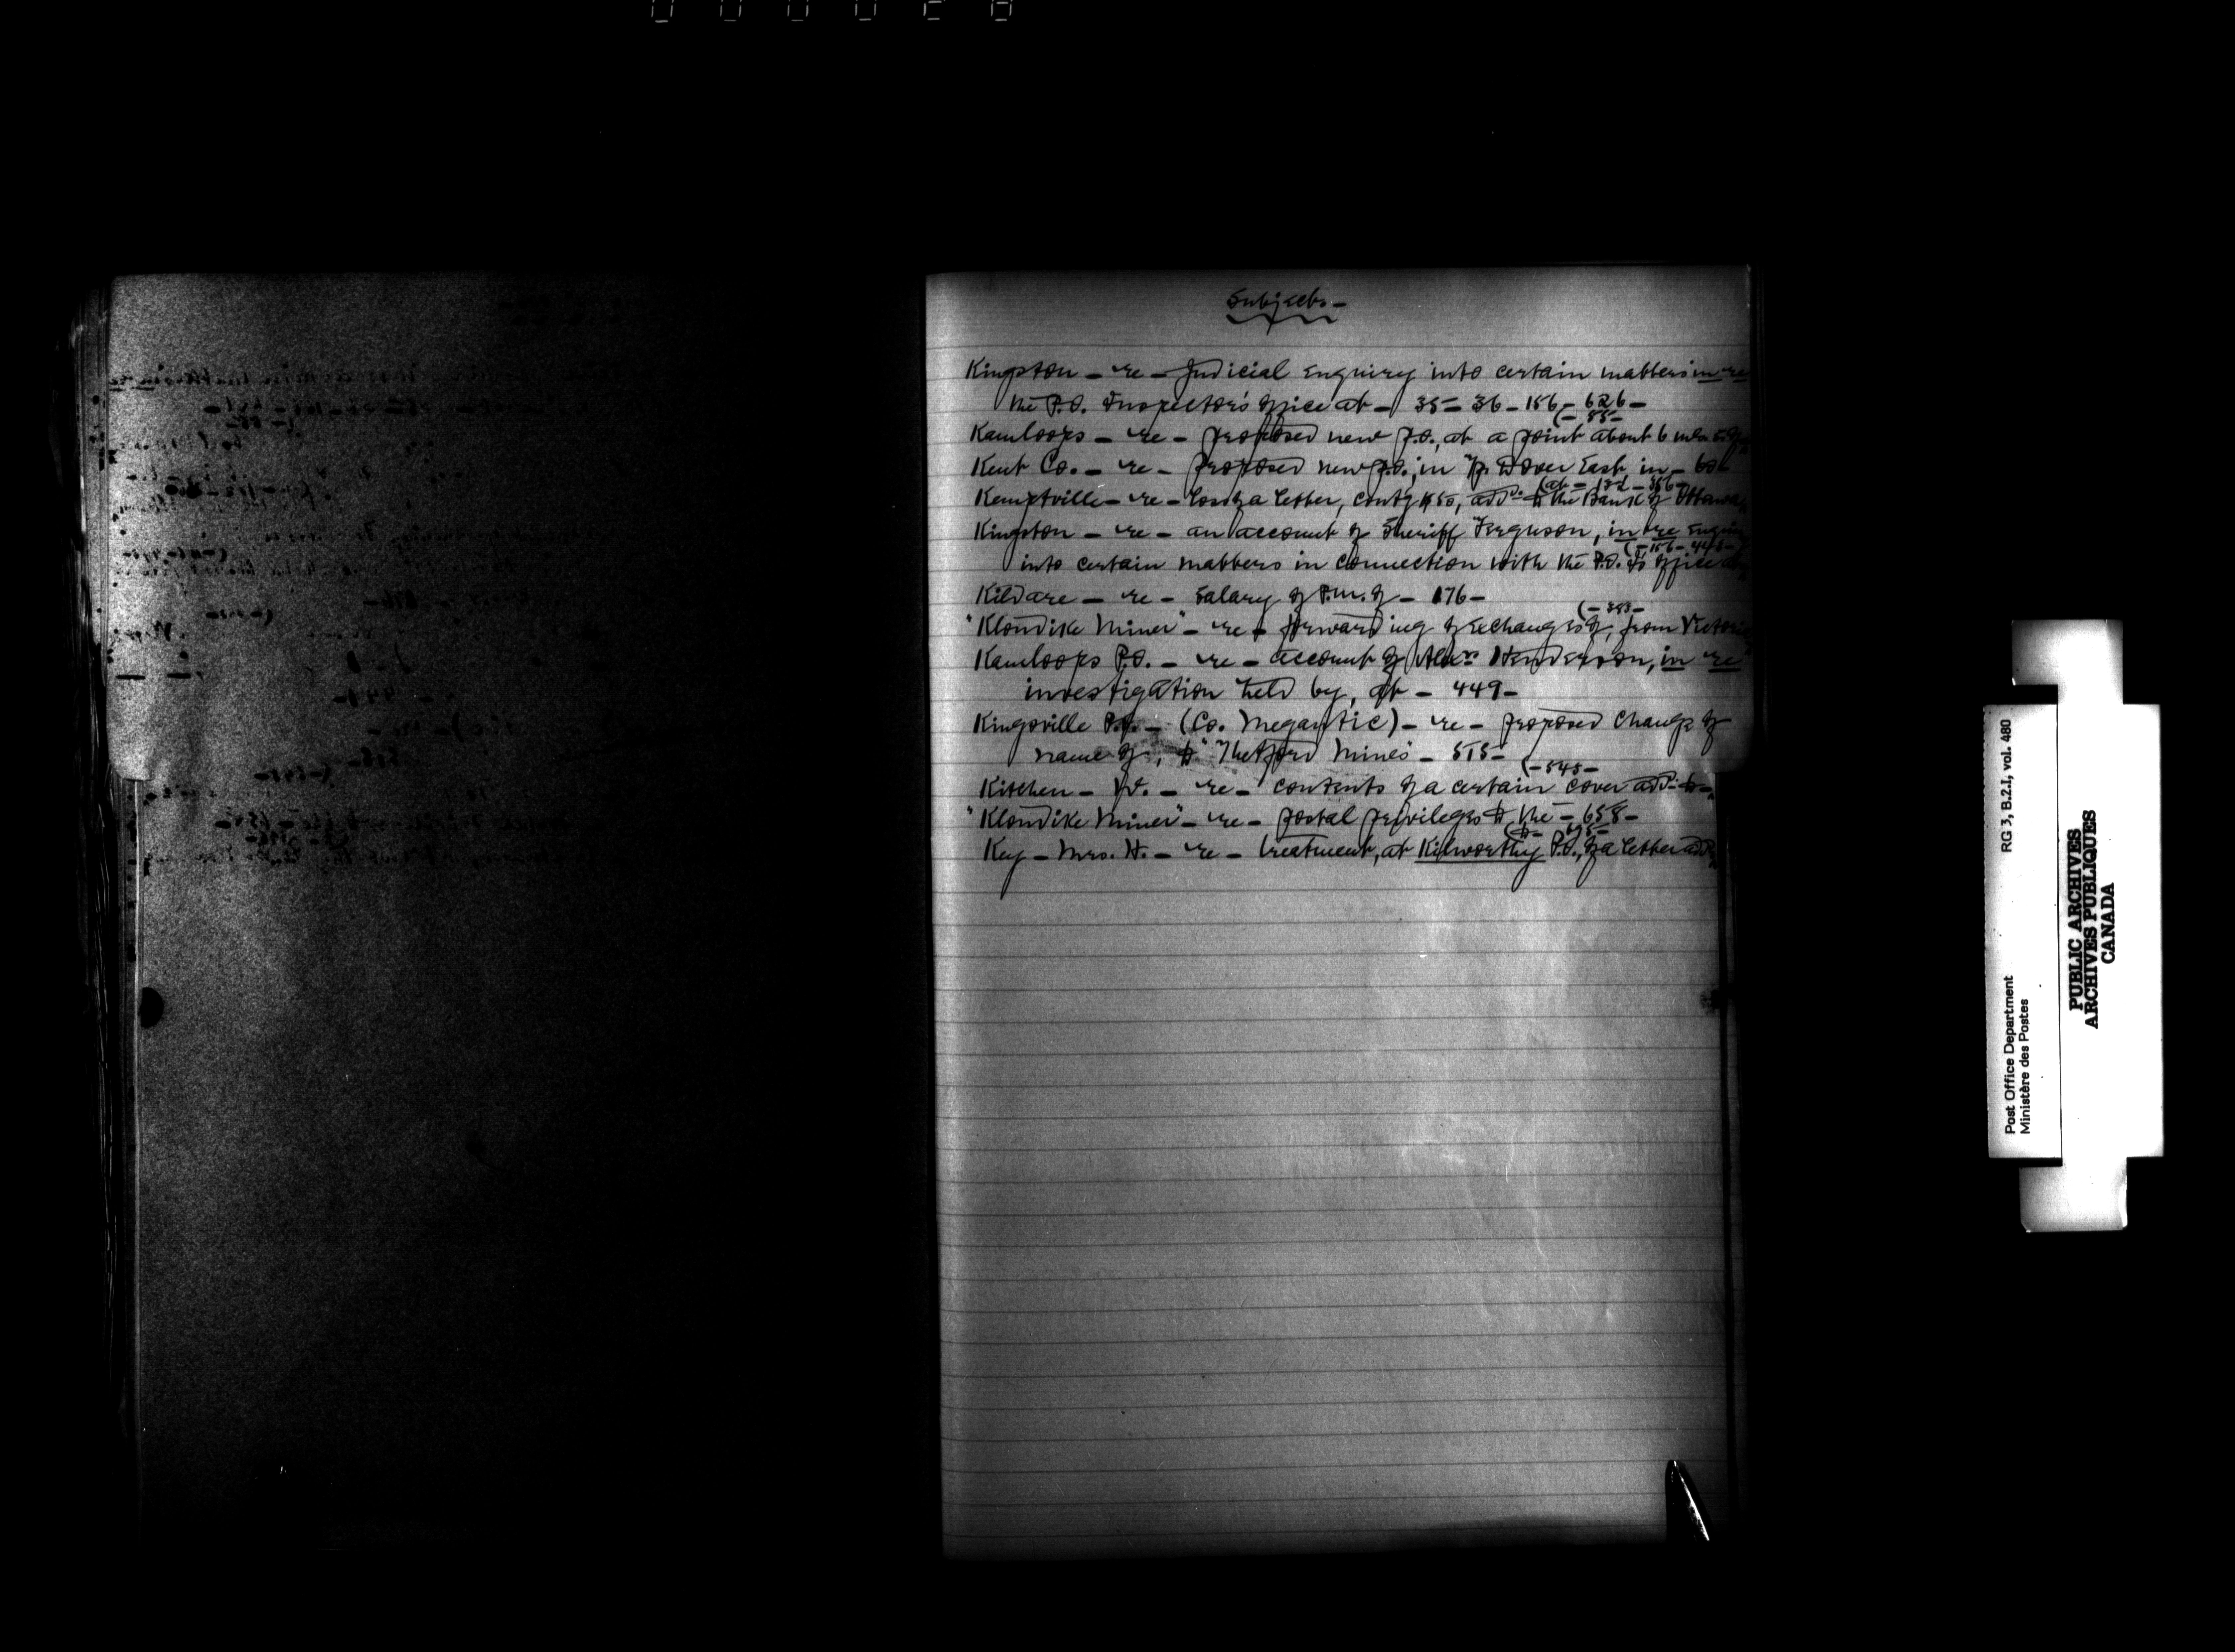 Subjects –
Kingston – re – Judicial Enquiry into certain matters in re
the P.O. Inspector's Office at – 35 – 36 – 156 – 626 –
(– 55 –
Kamloops – re – proposed new P.O., at a point about 6 mls.
Kent Co. – re – proposed new P.O., in Tp. Dover East, in – 60 –
(at – 132 – 356 –
Kemptville – re – Loss of a letter, contg $50, addd. to the Bank of Ottawa
Kingston – re – an account of Sheriff Ferguson, in re Enquiry
(– 156 – 448 –
into certain matters in connection with the P.O. I's Office
Kildare – re – Salary of P.M. of – 176 –
(– 383 –
"Klondike Miner" – re – forwarding of Exchanges of, from Victoria
Kamloops P.O. – re – account of Alexr. Henderson, in re
investigation held by, at – 449 –
Kingsville P.O. – (Co. Megantic) – re – proposed change of
name of, to "Thetford Mines" – 515 –
(– 545 –
Kitchen – W. – re – contents of a certain cover addd. to –
"Klondike Miner" – re – postal privileges to the – 658 –
(to – 695 –
Key – Mrs. H. – re – treatment, at Kilworthy P.O., of a letter addd.
RG 3, B.2.I, vol. 480
Post Office Department
Ministère des Postes
PUBLIC ARCHIVES
ARCHIVES PUBLIQUES
CANADA